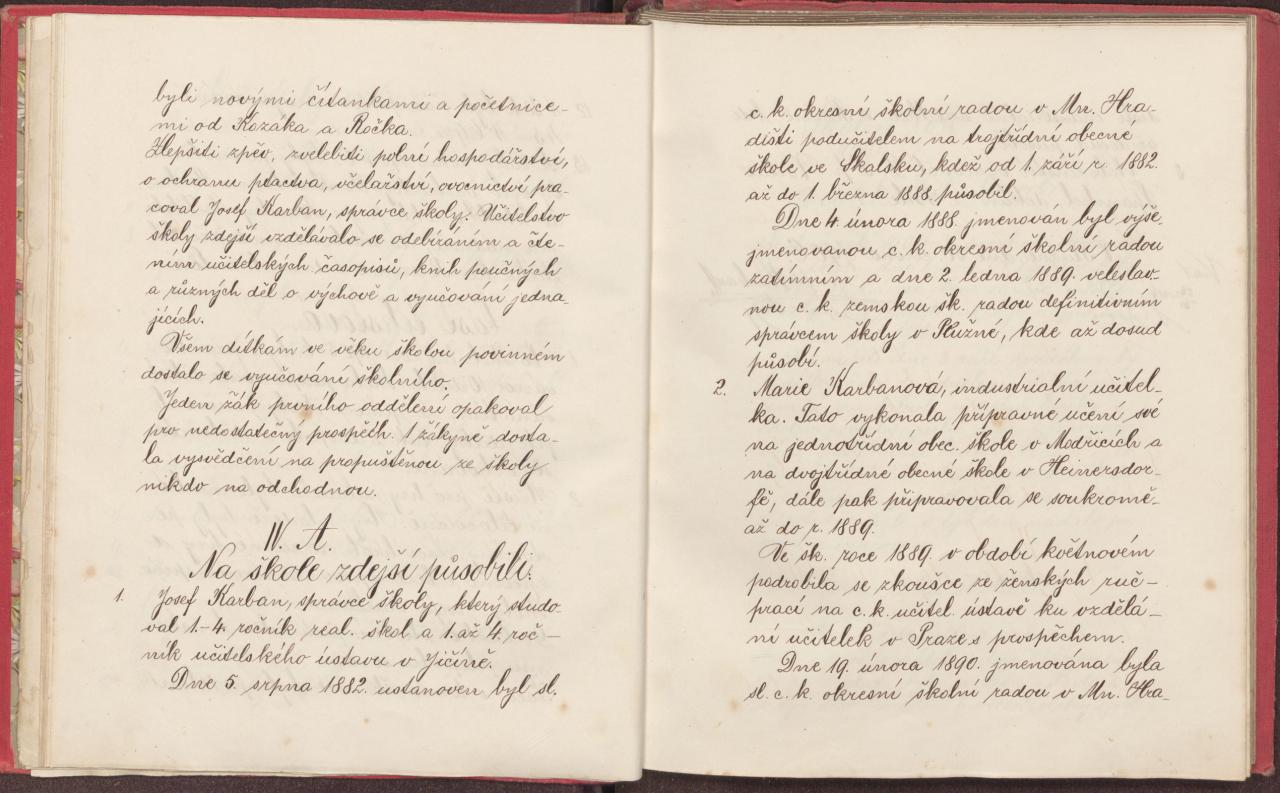 byli novými čítankami a početnice-
mi od Kozáka a Ročka.
Zlepšiti zpěv, zvelebiti polní hospodářství,
o ochranu ptactva, včelařství, ovocnictví pra-
coval Josef Karban, správce školy. Učitelstvo
školy zdejší vzdělávalo se odebíráním a čte-
ním učitelských časopisů, knih poučných
a různých děl o výchově a vyučování jedna-
jících.
Všem dítkám ve věku školou povinném
dostalo se vyučování školního.
Jeden žák prvního oddělení opakoval
pro nedostatečný prospěch. 1 žákyně dosta-
la vysvědčení na propuštěnou ze školy
nikdo na odchodnou.
IV. A.
Na škole zdejší působili:
1. Josef Karban, správce školy, který studo
val 1.-4. ročník real. škol a 1. až 4. roč-
ník učitelského ústavu v Jičíně.
Dne 5. srpna 1882. ustanoven byl sl.
c. k. okresní školní radou v Mn. Hra-
dišti podučitelem na trojtřídní obecné
škole ve Skalsku, kdež od 1. září r. 1882.
až do 1. března 1888. působil.
Dne 4. února 1888. jmenován byl výše
jmenovanou c. k. okresní školní radou
zatímním a dne 2. ledna 1889. veleslav-
nou c. k. zemskou šk. radou definitivním
správcem školy v Plužné, kde až dosud
působí.
2. Marie Karbanová, industrialní učitel-
ka. Tato vykonala přípravné učení své
na jednotřídní obec. škole v Modřicích a
na dvojtřídné obecné škole v Heinersdor-
fě, dále pak připravovala se soukromě-
až do r. 1889.
Ve šk. roce 1889. v období květnovém
podrobila se zkoušce ze ženských ruč-
prací na c. k. učitel. ústavě ku vzdělá-
ní učitelek v Praze s prospěchem.
Dne 19. února 1890. jmenována byla
sl. c. k. okresní školní radou v Mn. Hra-